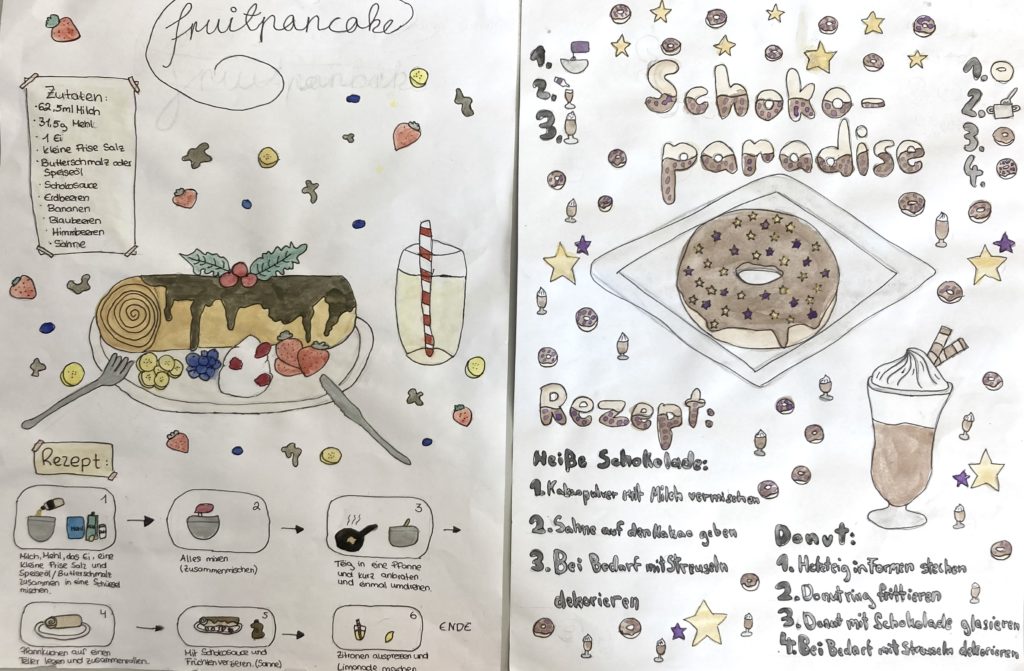 fruitpancake
Zutaten:
· 62,5ml Milch
· 31,5g Mehl
· 1 Ei
· kleine Prise Salz
· Butterschmalz oder
Speiseöl
· Schokosauce
· Erdbeeren
· Bananen
· Blaubeeren
· Himmbeeren
· Sahne
Rezept:
1
Mehl
Milch, Mehl, das Ei, eine
kleine Prise Salz und
Speiseöl/Butterschmalz
zusammen in eine Schüssel
mischen.
2
Alles mixen
(zusammenmischen)
3
Teig in eine Pfanne
und kurz anbraten
und einmal umdrehen.
4
Pfannkuchen auf einen
Teller legen und zusammenrollen.
5
Mit Schokosauce und
Früchten verzieren. (Sahne)
6
Zitronen auspressen und
Limonade machen
ENDE
1.
2.
3.
Schoko-
paradise
1.
2.
3.
4.
Rezept:
Heiße Schokolade:
1. Kakaopulver mit Milch vermischen
2. Sahne auf den Kakao geben
3. Bei Bedarf mit Streuseln
dekorieren
Donut:
1. Hefeteig in Formen stechen
2. Donutring frittieren
3. Donut mit Schokolade glasieren
4. Bei Bedarf mit Streuseln dekorieren